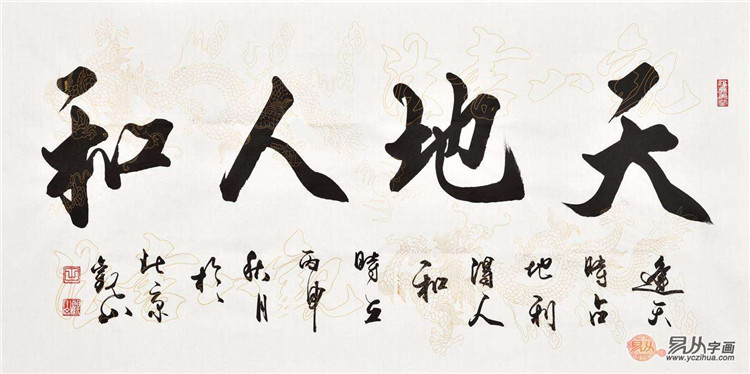 天地人和
逢天
時占
地利
得人
和
時在
丙申
秋月
於
北京
觀山
易从字画
www.yczihua.com